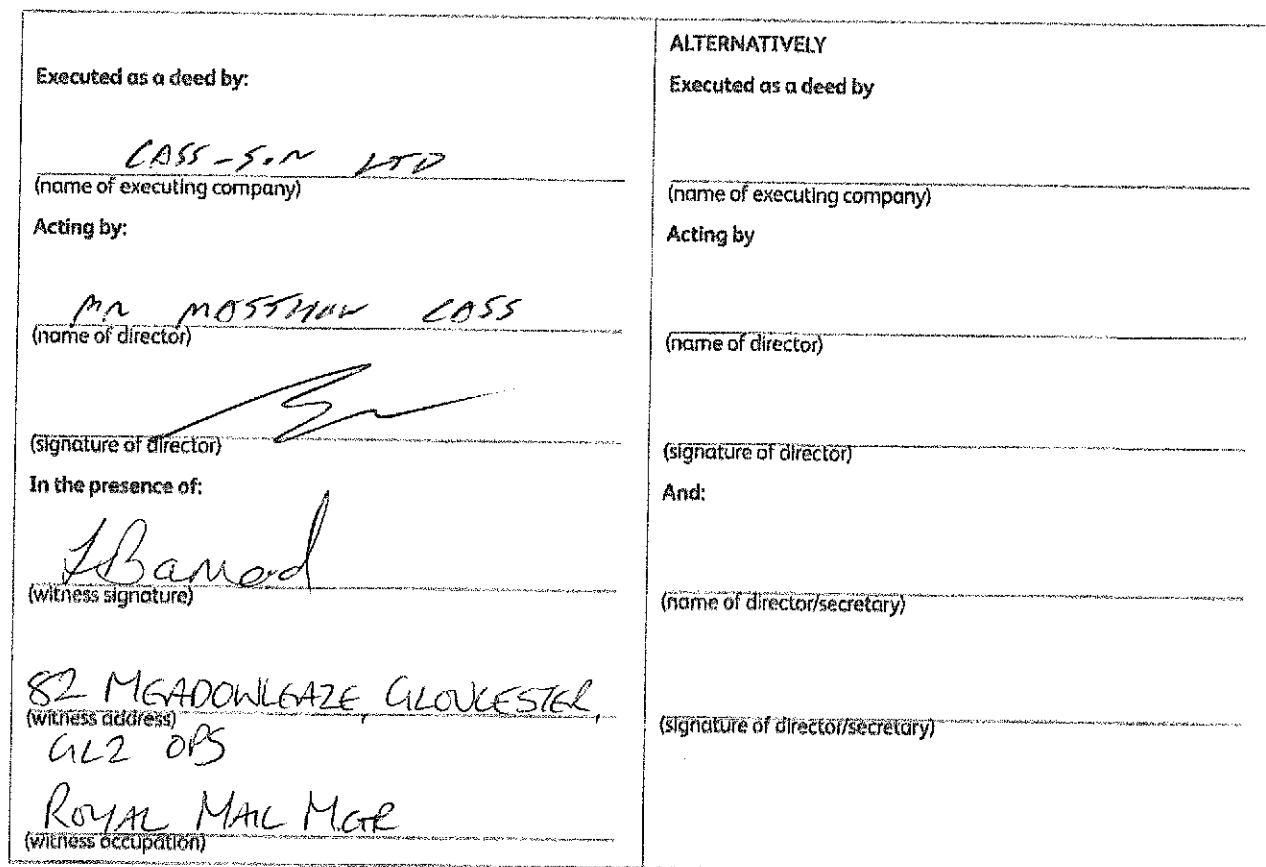 Executed as a deed by:
CASS-SON LTD
(name of executing company)
Acting by:
MR MATTHEW CASS
(name of director)
(signature of director)
In the presence of:
(witness signature)
82 MEADOWLEAZE, GLOUCESTER,
(witness address)
GL2 0PS
ROYAL MAIL MGR
(witness occupation)
ALTERNATIVELY
Executed as a deed by
(name of executing company)
Acting by
(name of director)
(signature of director)
And:
(name of director/secretary)
(signature of director/secretary)